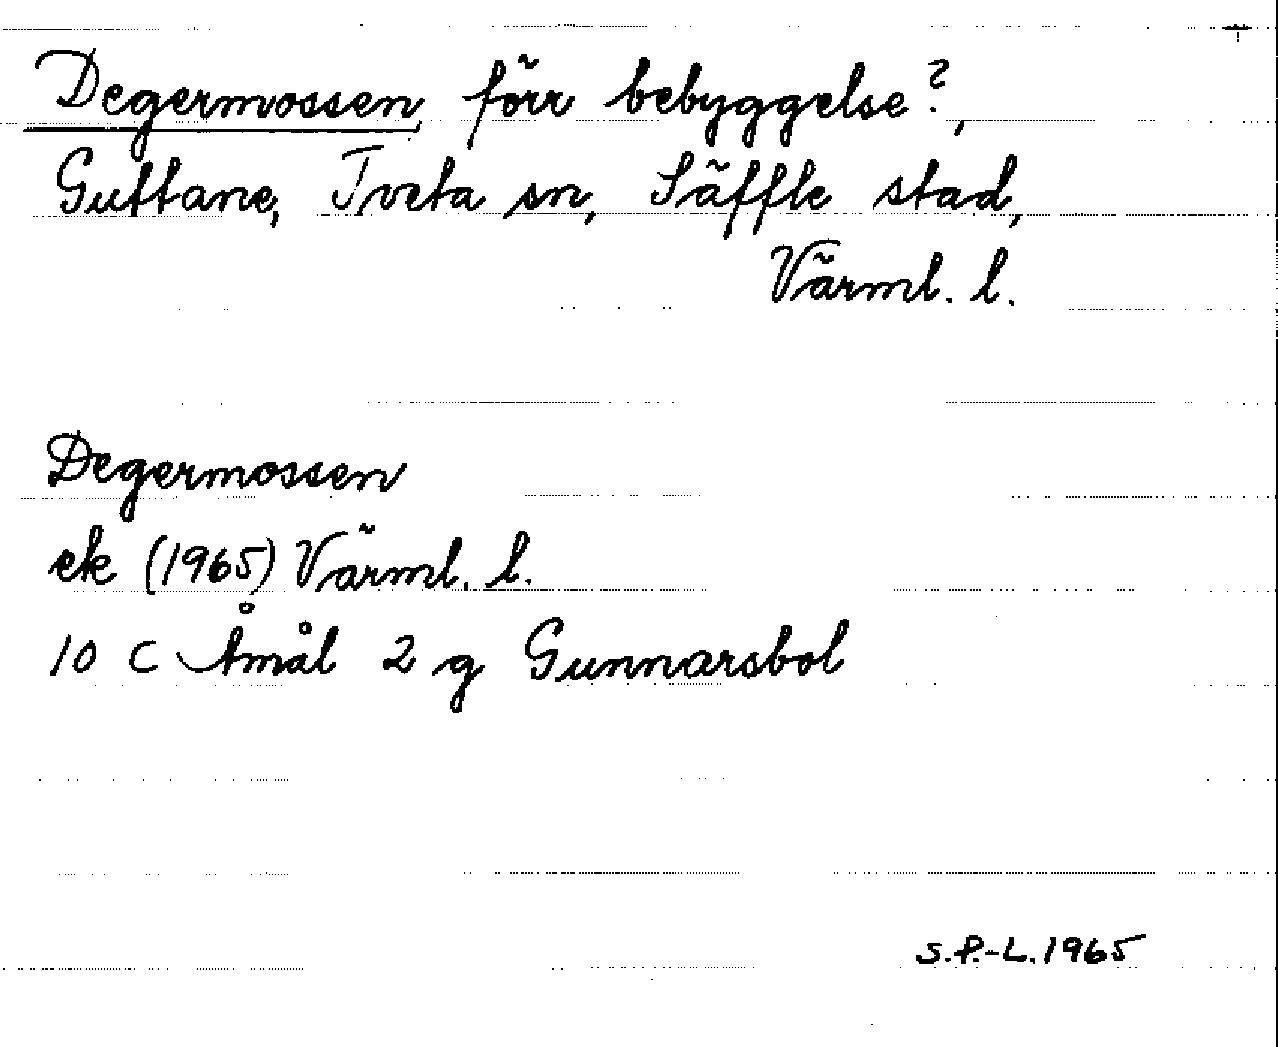 Degermossen förr bebyggelse?,
Guttane, Tveta sn, Säffle stad,
Värml. l.
Degermossen
ek (1965) Värml. l.
10 C Åmål 2 g Gunnarsbol
S.P.-L. 1965